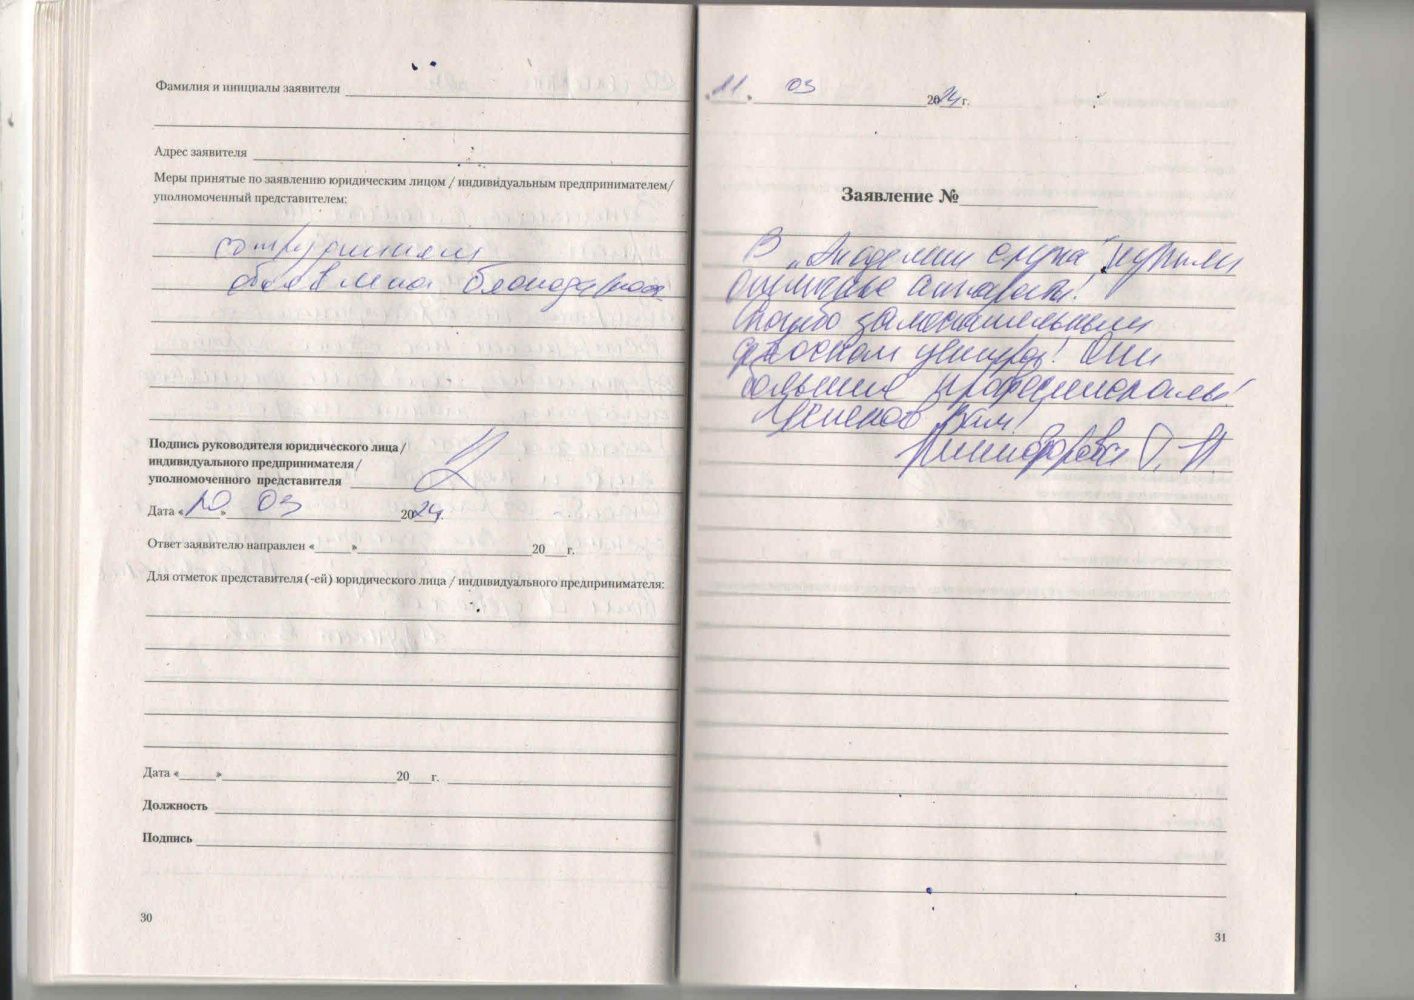 Фамилия и инициалы заявителя
Адрес заявителя
Меры принятые по заявлению юридическим лицом / индивидуальным предпринимателем/
уполномоченный представителем:
сотрудникам
объявлена благодарность
Подпись руководителя юридического лица /
индивидуального предпринимателя /
уполномоченного представителя
Дата «10» 03 2024г.
Ответ заявителю направлен «      »                20    г.
Для отметок представителя (-ей) юридического лица / индивидуального предпринимателя:
Дата «      »                20    г.
Должность
Подпись
30
11. 03 2024г.
Заявление №
В „Академии слуха" купили
отличные аппараты!
Спасибо замечательным
Они
большие профессионалы!
Успехов Вам!
31